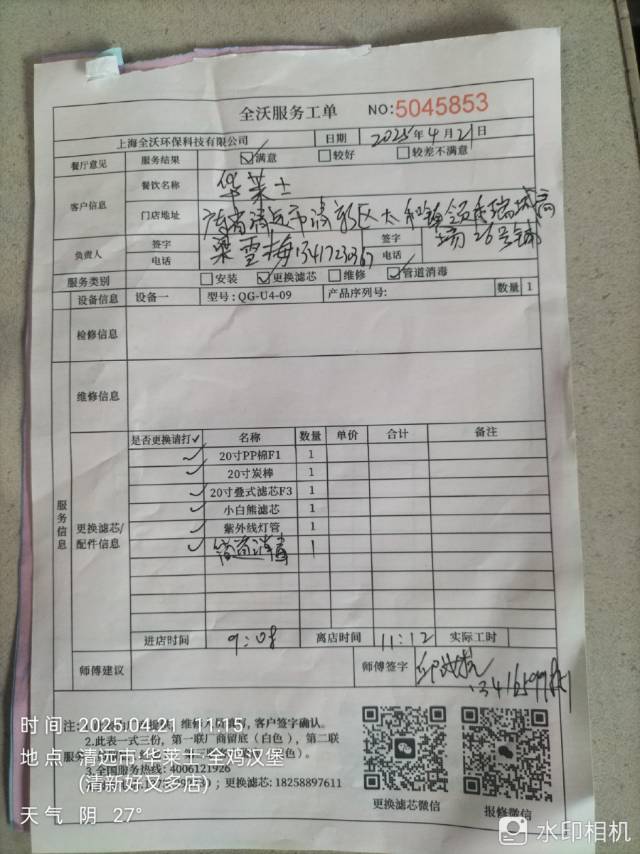 全沃服务工单 NO:5045853
上海全沃环保科技有限公司 日期 2025年4月21日
餐厅意见 服务结果 ☑满意 □较好 □较差不满意
客户信息 餐饮名称 华莱士
门店地址 清远市清新区太和镇
场26号铺
负责人 签字 电话 梁雪梅 签字 电话
服务类别 □安装 ☑更换滤芯 □维修 ☑管道消毒
设备信息 设备一 型号:QG-U4-09 产品序列号: 数量 1
检修信息
维修信息
服务信息
更换滤芯/配件信息
是否更换请打✓ 名称 数量 单价 合计 备注
✓ 20寸PP棉F1 1
✓ 20寸炭棒 1
✓ 20寸叠式滤芯F3 1
✓ 小白熊滤芯 1
✓ 紫外线灯管 1
✓ 管道消毒 1
进店时间 9:08 离店时间 11:12 实际工时
师傅建议 师傅签字
注:
客户签字确认。
2.此表一式三份,第一联厂商留底(白色),第二联
3.全国服务热线:4006121926
;更换滤芯:18258897611
更换滤芯微信 报修微信
时间 2025.04.21 11:15
地点 清远市·华莱士·全鸡汉堡
(清新好又多店)
天气 阴 27°
水印相机